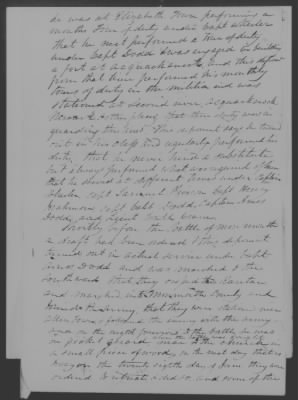 he was at Elizabeth Town performing a
months Tour of duty under Capt Wheeler
That he next performed a Tour of duty
under Capt Dodd & was engaged in building
a fort at Acquackanonk, and this deponent
from that time performed his monthly
terms of duty in the militia and was
stationed at Second river, Acquackanonk
Newark & other places that their duty was in
guarding the lines. This deponent says he turned
out in his class and regularly performed his
duty, that he never hired a substitute
but always performed what was required of him
that he served at different times under Captain
Wheeler Capt Samuel Pierson Capt Henry
Capt Caleb Dodd, Captain Amos
Dodd, and Lieut
Shortly before the battle of monmouth
a draft had been ordered & this deponent
turned out in actual service under Capt
Amos Dodd and was marched to the
Southward that they crossed the Raritan
and marched into Monmouth County and
the Enemy, that they were there
with the enemy
the battle he was
on picket guard when the battle was fought near to the
a small piece of woods, on the next day that is
the twenty eighth day of June they are
ordered to retreat and some of the